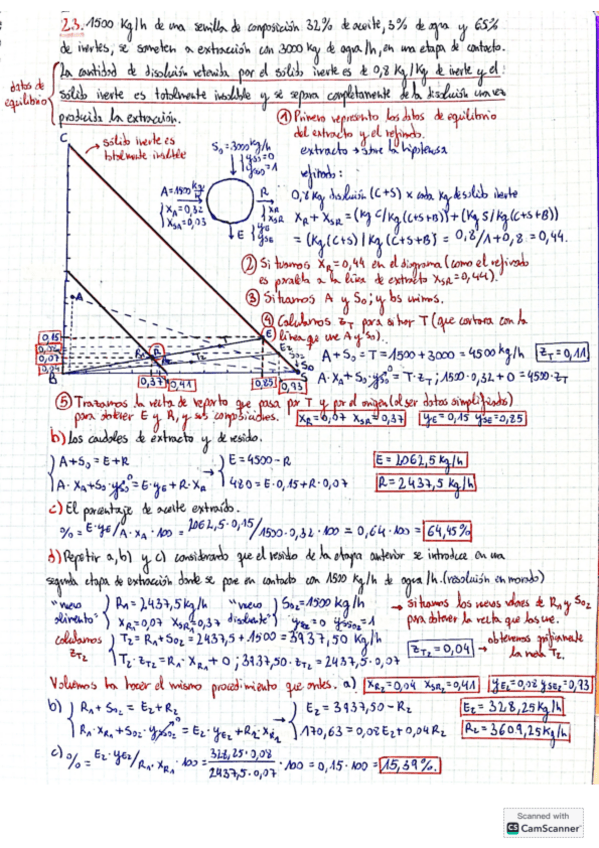 2.3. 1500 Kg/h de una semilla de composición 32% de aceite, 3% de agua y 65%
de inertes, se someten a extracción con 3000 Kg de agua/h, en una etapa de contacto.
La cantidad de disolución retenida por el sólido inerte es de 0,8 Kg/Kg de inerte y el
sólido inerte es totalmente insoluble y se separa completamente de la disolución una vez
producida la extracción.
datos de
equilibrio
① Primero represento los datos de equilibrio
del extracto y el refinado.
extracto → sobre la hipotenusa
refinado:
0,8 Kg disolución (C+S) x cada Kg de sólido inerte
X_R + X_SR = (Kg C/Kg(C+S+B)) + (Kg S/Kg(C+S+B))
= (Kg(C+S)/Kg(C+S+B)) = 0,8/1+0,8 = 0,44.
C
sólido inerte es
totalmente insoluble
S₀=3000 Kg/h
y_S0=0
y_SS0=1
A=1500 Kg/h
X_A=0,32
X_SA=0,03
R
X_R
X_SR
E
y_E
y_SE
② Situamos X_R=0,44 en el diagrama (como el refinado
es paralela a la línea de extracto X_SR=0,44).
③ Situamos A y S₀; y los unimos.
④ Calculamos Z_T para situar T (que cortara con la
línea que une A y S₀).
A+S₀=T=1500+3000=4500 kg/h
Z_T=0,11
A·X_A+S₀·y_S0=T·Z_T; 1500·0,32+0=4500·Z_T
A
0,15
0,07
0,04
B
R₁
R
T₂
E
E₂
S₀₂
S₀
0,37
0,41
0,85
0,93
⑤ Trazamos la recta de reparto que pasa por T y por el origen (al ser datos simplificados)
para obtener E y R, y sus composiciones.
X_R=0,07 X_SR=0,37
y_E=0,15 y_SE=0,85
b) Los caudales de extracto y de residuo.
A+S₀=E+R → E=4500-R
E=2062,5 kg/h
A·X_A+S₀·y_S0⁰=E·y_E+R·X_R 480=E·0,15+R·0,07
R=2437,5 kg/h
c) El porcentaje de aceite extraído.
%=E·y_E/A·X_A·100=2062,5·0,15/1500·0,32·100=0,64·100=64,45%
d) Repetir a, b) y c) considerando que el residuo de la etapa anterior se introduce en una
segunda etapa de extracción donde se pone en contacto con 1500 Kg/h de agua/h. (resolución en morado)
"nuevo
alimento"
R₁=2437,5 kg/h
X_R=0,07 X_SR=0,37
"nuevo
disolvente"
S₀₂=1500 Kg/h
y_S0=0 y_SS0₂=1
→ situamos los nuevos valores de R₁ y S₀₂
para obtener la recta que los une.
calculamos
Z_T2
T₂=R₁+S₀₂=2437,5+1500=3937,50 Kg/h
T₂·Z_T2=R₁·X_R1+0; 3937,50·Z_T2=2437,5·0,07
Z_T2=0,04
→ obtenemos gráficamente
la nueva T₂.
Volvemos ha hacer el mismo procedimiento que antes. a)
X_R2=0,04 X_SR2=0,41
y_E2=0,08 y_SE2=0,93
b) R₁+S₀₂=E₂+R₂ → E₂=3937,50-R₂
E₂=328,25 kg/h
R₁·X_R1+S₀₂·y_S02⁰=E₂·y_E2+R₂·X_R2 170,63=0,08E₂+0,04R₂
R₂=3609,25 kg/h
c) %=E₂·y_E2/R₁·X_R1·100=328,25·0,08/2437,5·0,07·100=0,15·100=15,39%.
Scanned with
CS CamScanner